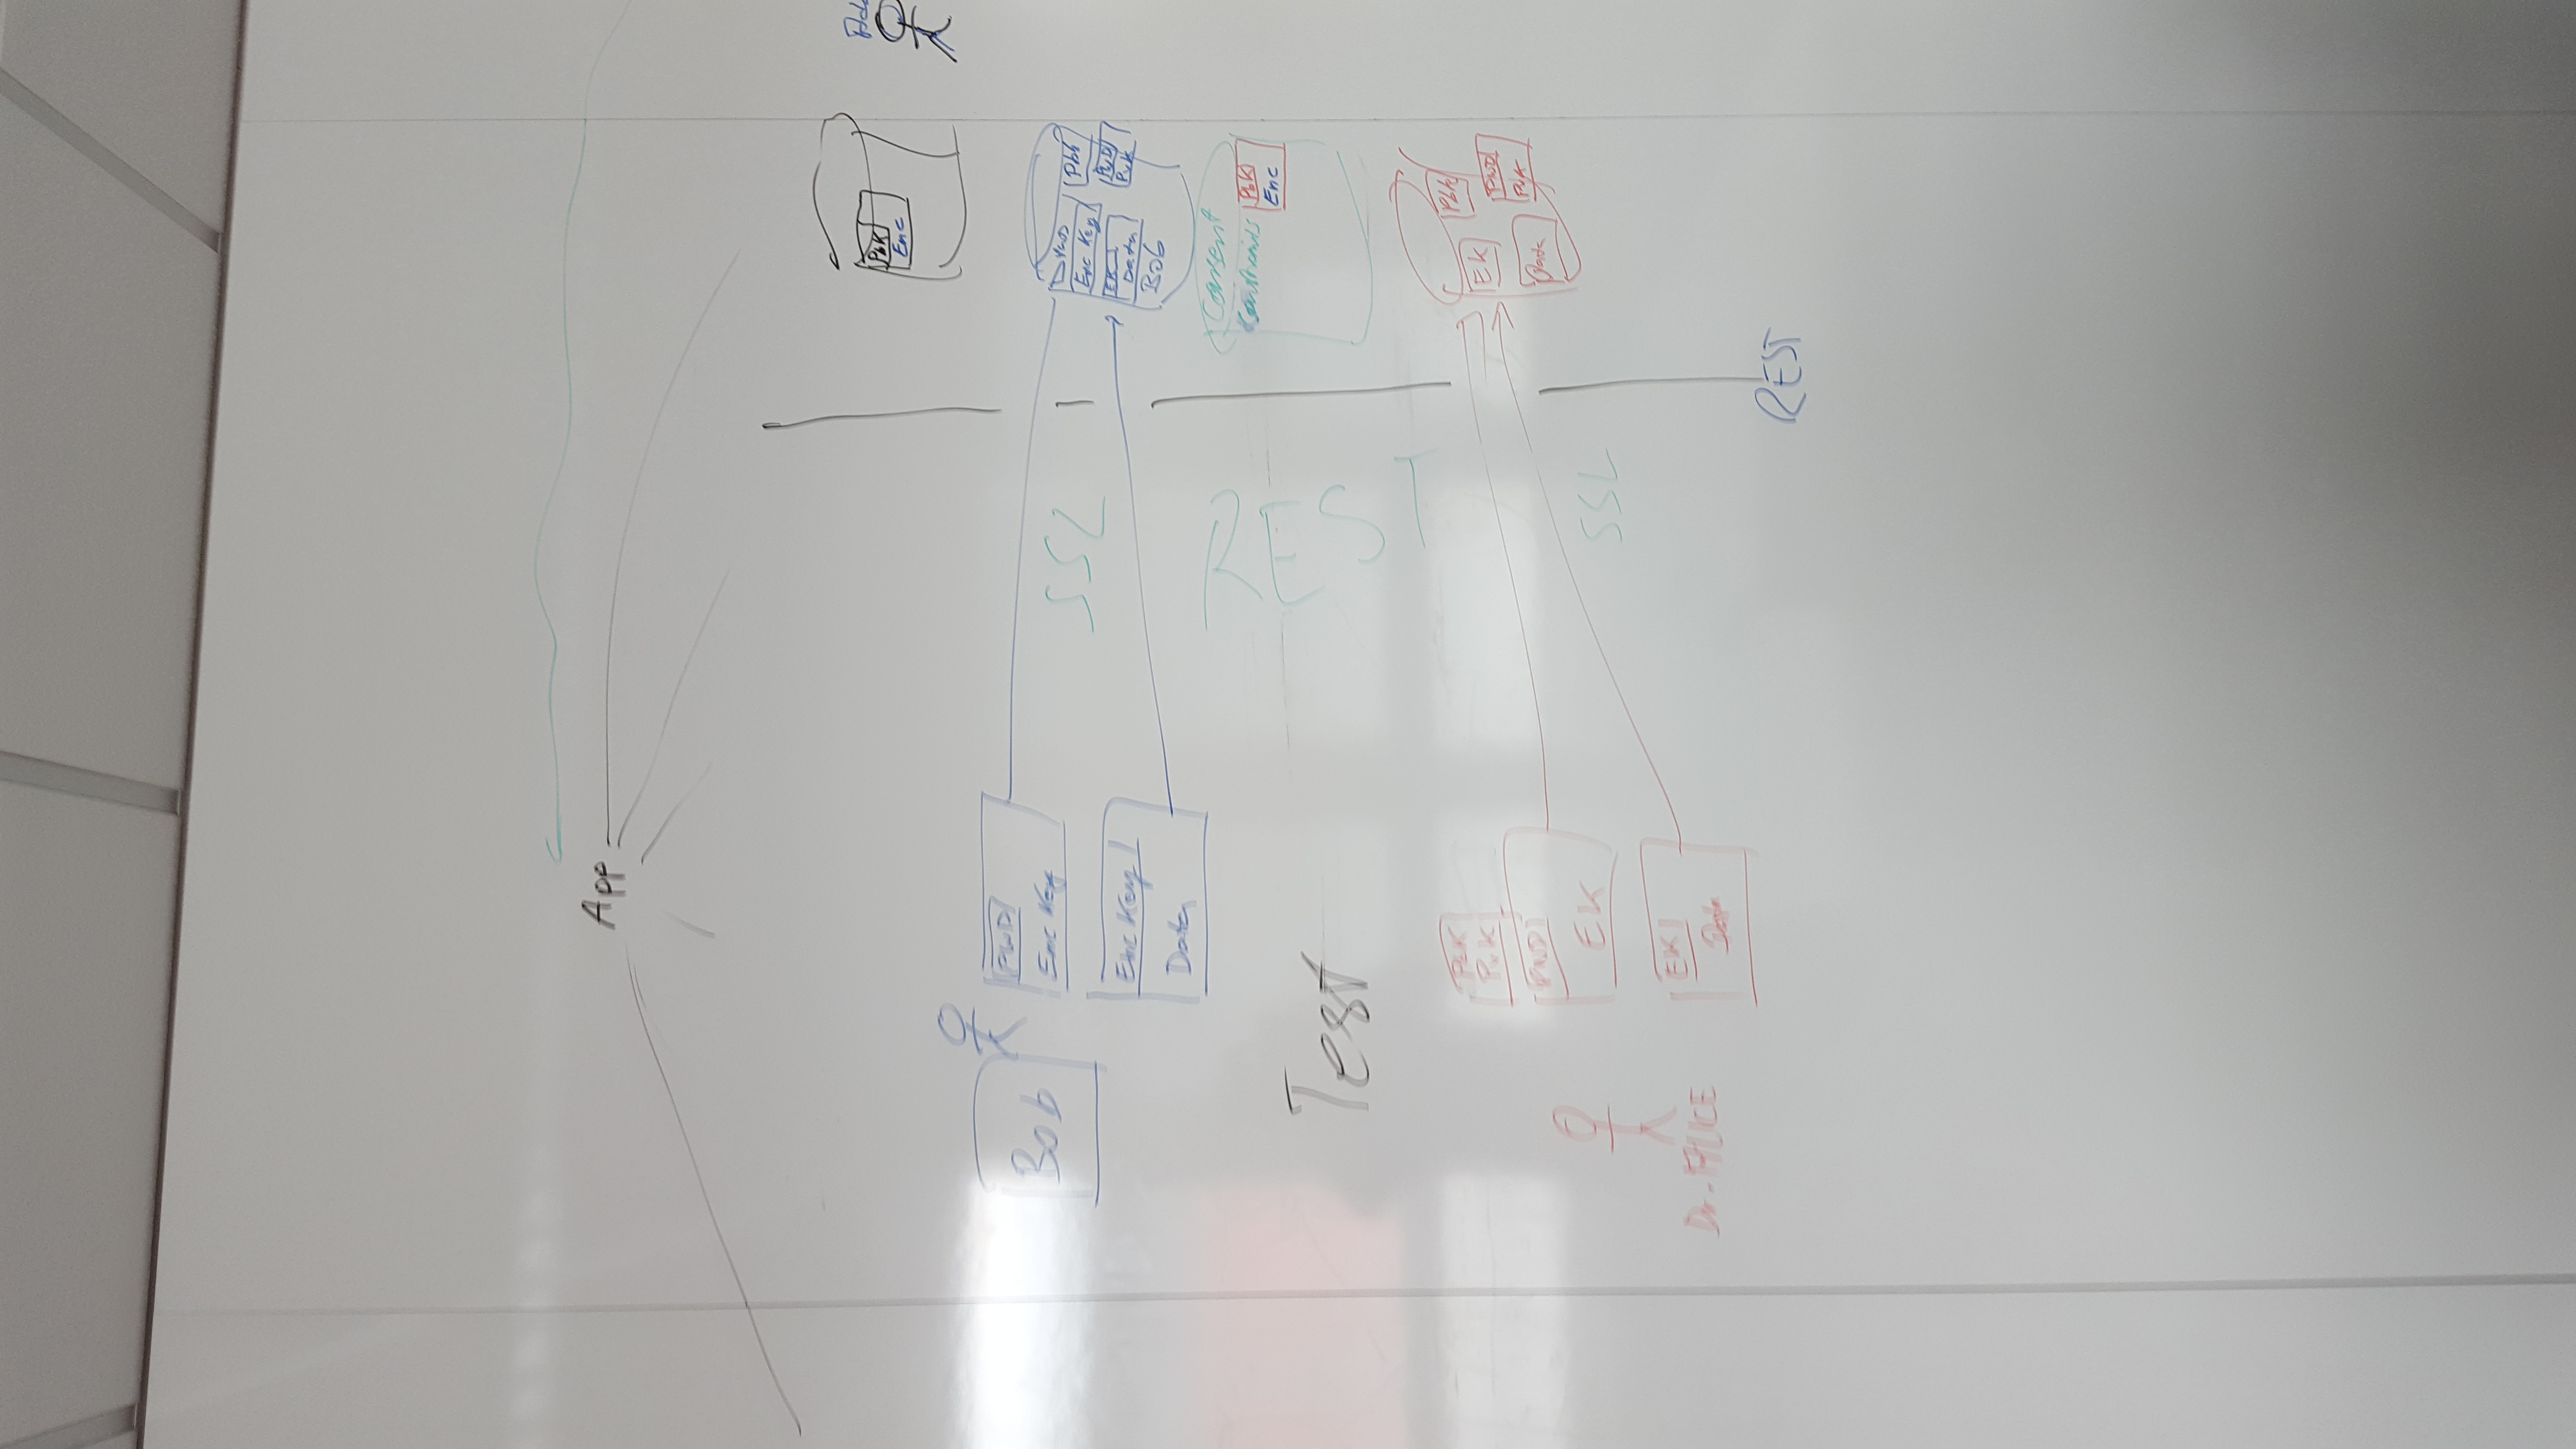 App
PbK
Enc
Bob
PWD
Enc Key
Enc Key
Data
SSL
Enc Key
EK
Data
Bob
Pbk
PWD
PvK
REST
Consent
PbK
Enc
Test
PbK
PvK
PWD
EK
EK
Data
Dr. ALICE
SSL
EK
Pbk
PWD
PvK
Data
REST